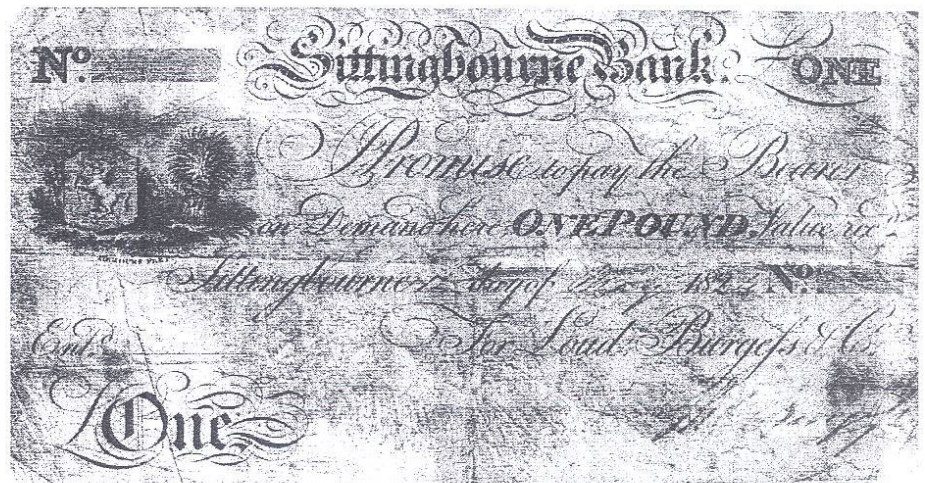 No. Sittingbourne Bank. ONE
I Promise to pay the Bearer
on Demand here ONE POUND, Value recd.
Sittingbourne 12 day of May 182 No.
Entd. For Loud Burgess & Co.
£ One